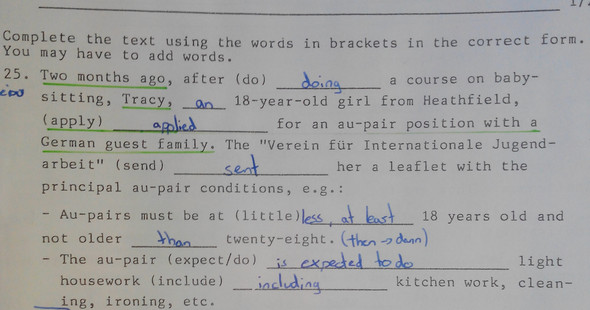 Complete the text using the words in brackets in the correct form.
You may have to add words.
25. Two months ago, after (do) doing a course on baby-
sitting, Tracy, an 18-year-old girl from Heathfield,
(apply) applied for an au-pair position with a
German guest family. The "Verein für Internationale Jugend-
arbeit" (send) sent her a leaflet with the
principal au-pair conditions, e.g.:
- Au-pairs must be at (little) less, at least 18 years old and
not older than twenty-eight. (then → dann)
- The au-pair (expect/do) is expected to do light
housework (include) including kitchen work, clean-
ing, ironing, etc.